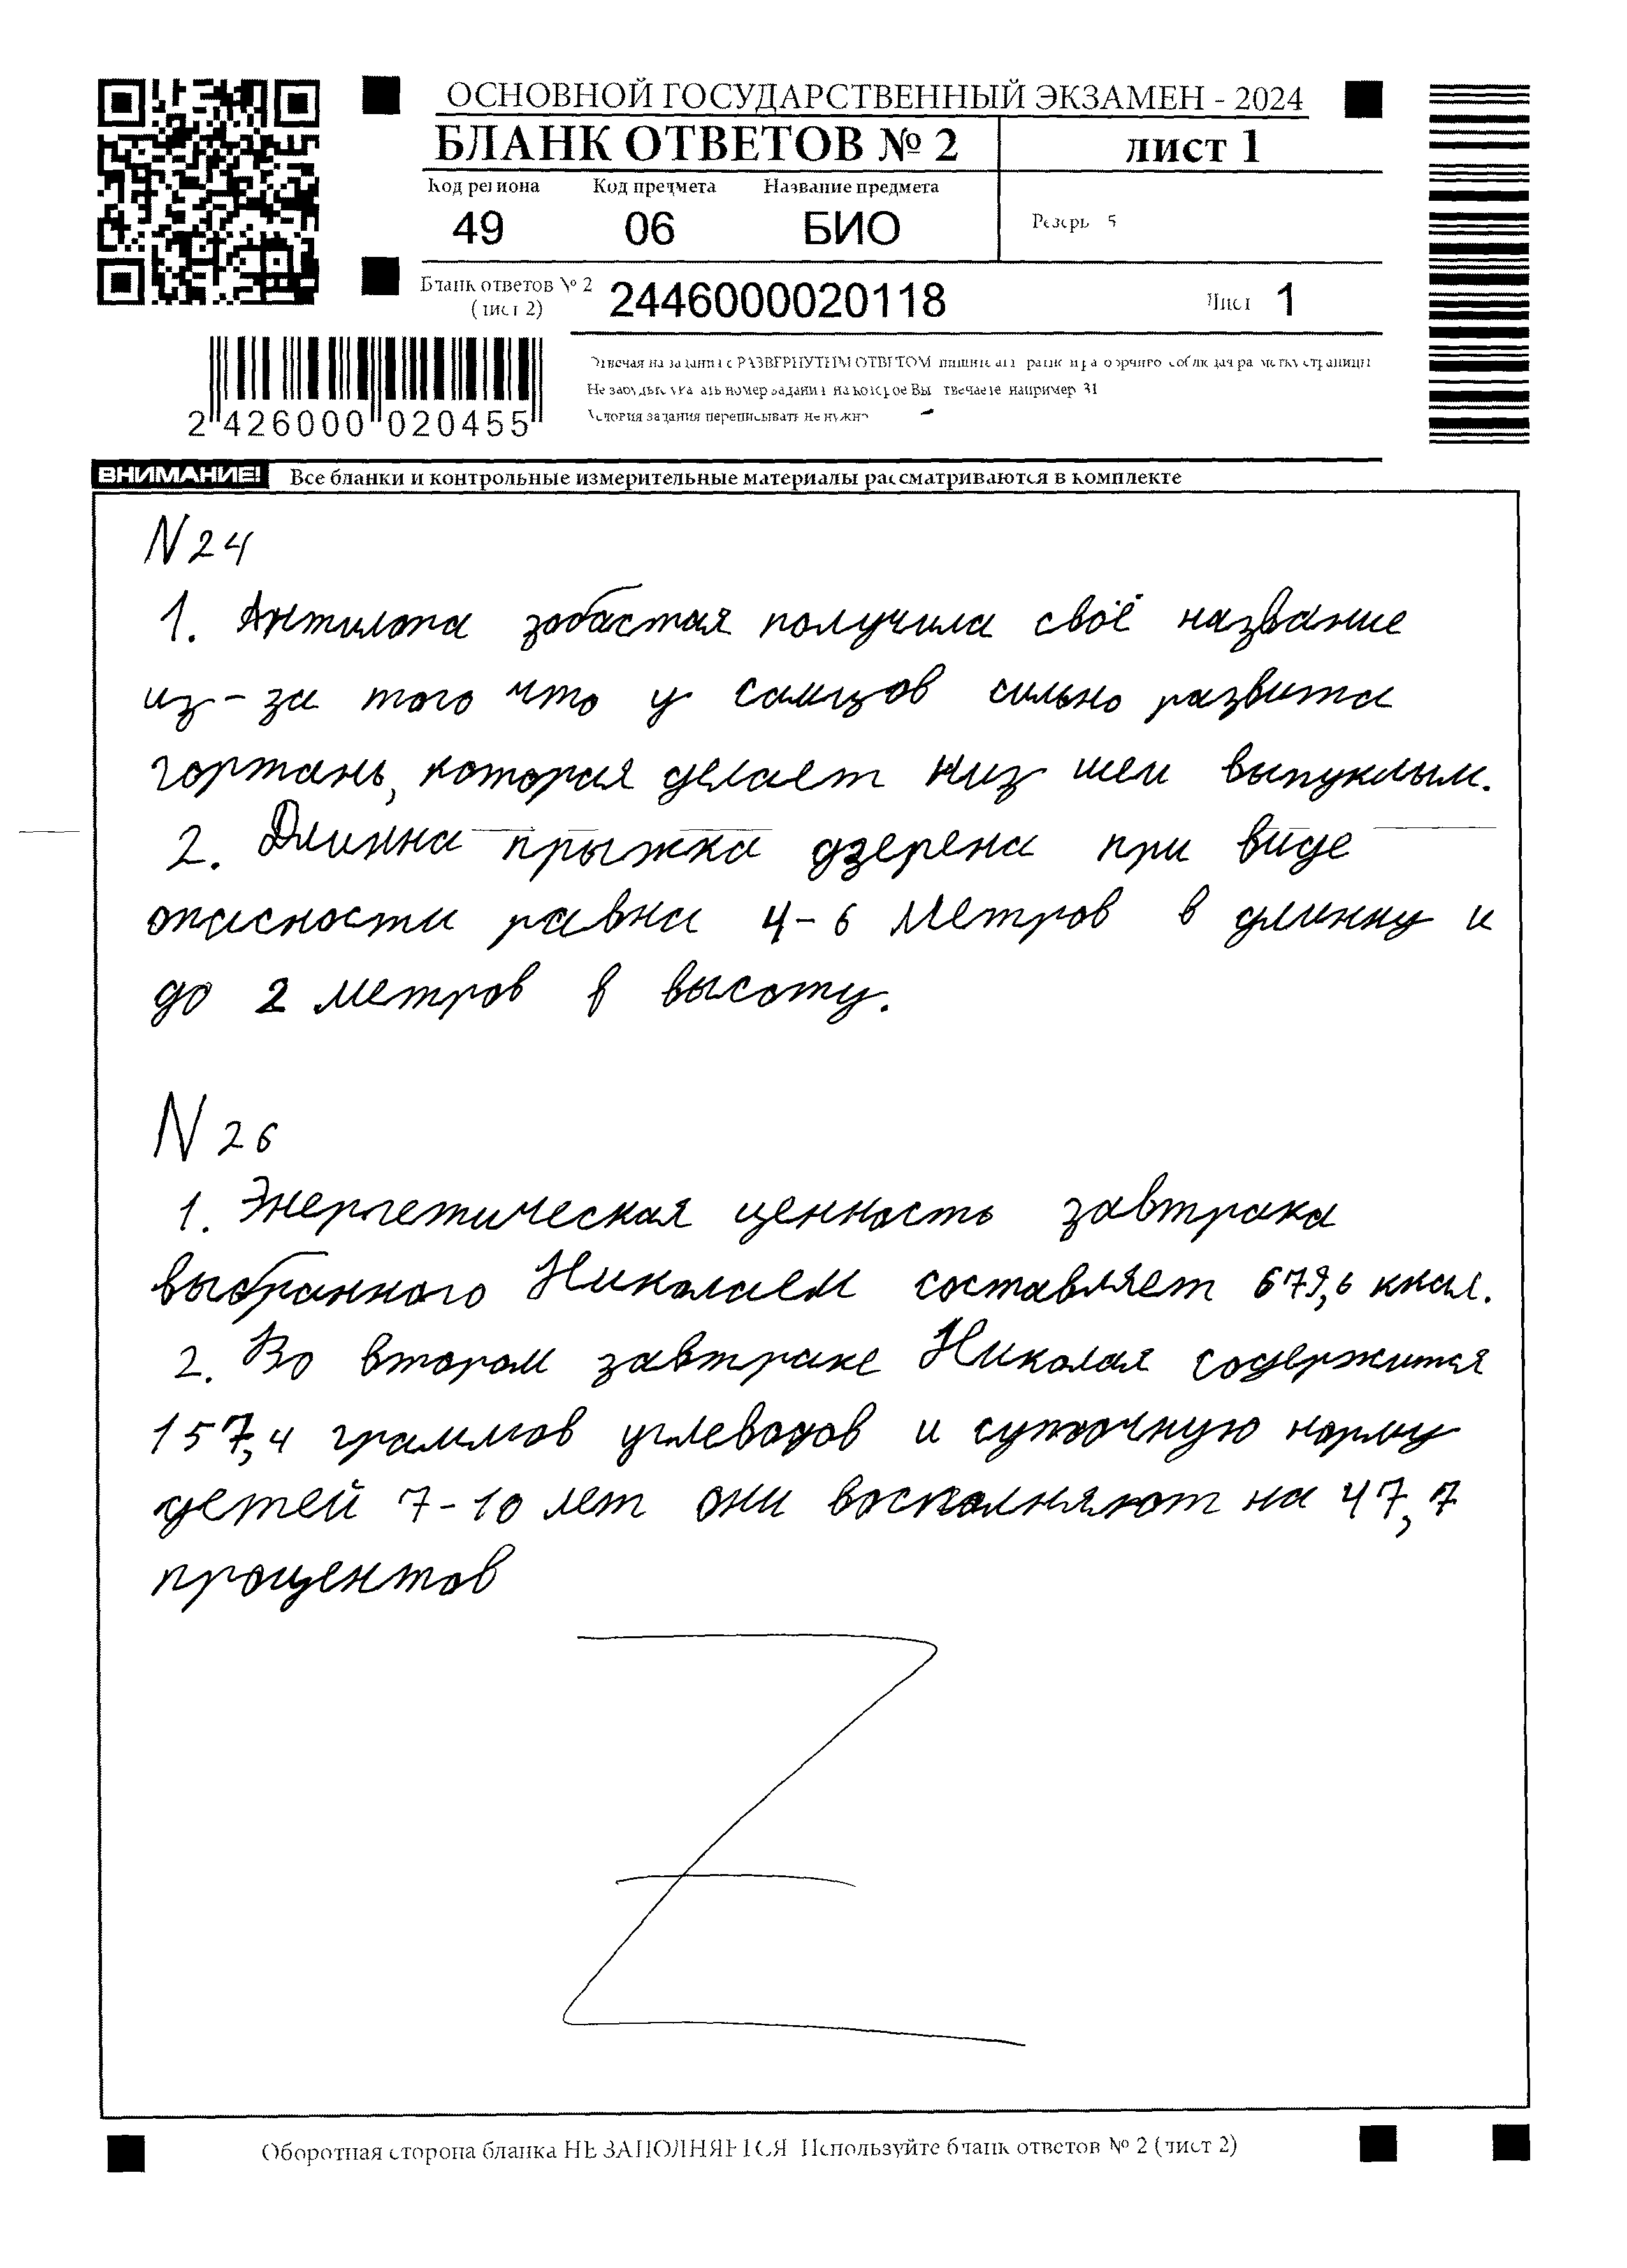 ОСНОВНОЙ ГОСУДАРСТВЕННЫЙ ЭКЗАМЕН - 2024
БЛАНК ОТВЕТОВ № 2
лист 1
Код региона Код предмета Название предмета
49 06 БИО
Резерв 5
Бланк ответов № 2
(лист 2)
2446000020118
Лист 1
2 426000 020455
Отвечая на задания с РАЗВЕРНУТЫМ ОТВЕТОМ, пишите аккуратно и разборчиво, соблюдая разметку страницы
Не забудьте указать номер задания, на которое Вы отвечаете, например 31
Условия задания переписывать не нужно
ВНИМАНИЕ! Все бланки и контрольные измерительные материалы рассматриваются в комплекте
N 24
1. Антилопа зобастая получила своё название
из-за того что у самцов сильно развита
гортань, которая делает низ шеи выпуклым.
2. Длинна прыжка дзерена при виде
опасности равна 4-6 метров в длинну и
до 2 метров в высоту.
N 26
1. Энергетическая ценность завтрака
выбранного Николаем составляет 679,6 ккал.
2. Во втором завтраке Николая содержится
157,4 граммов углеводов и суточную норму
детей 7-10 лет они восполняют на 47,7
процентов
Z
Оборотная сторона бланка НЕ ЗАПОЛНЯЕТСЯ Используйте бланк ответов № 2 (лист 2)